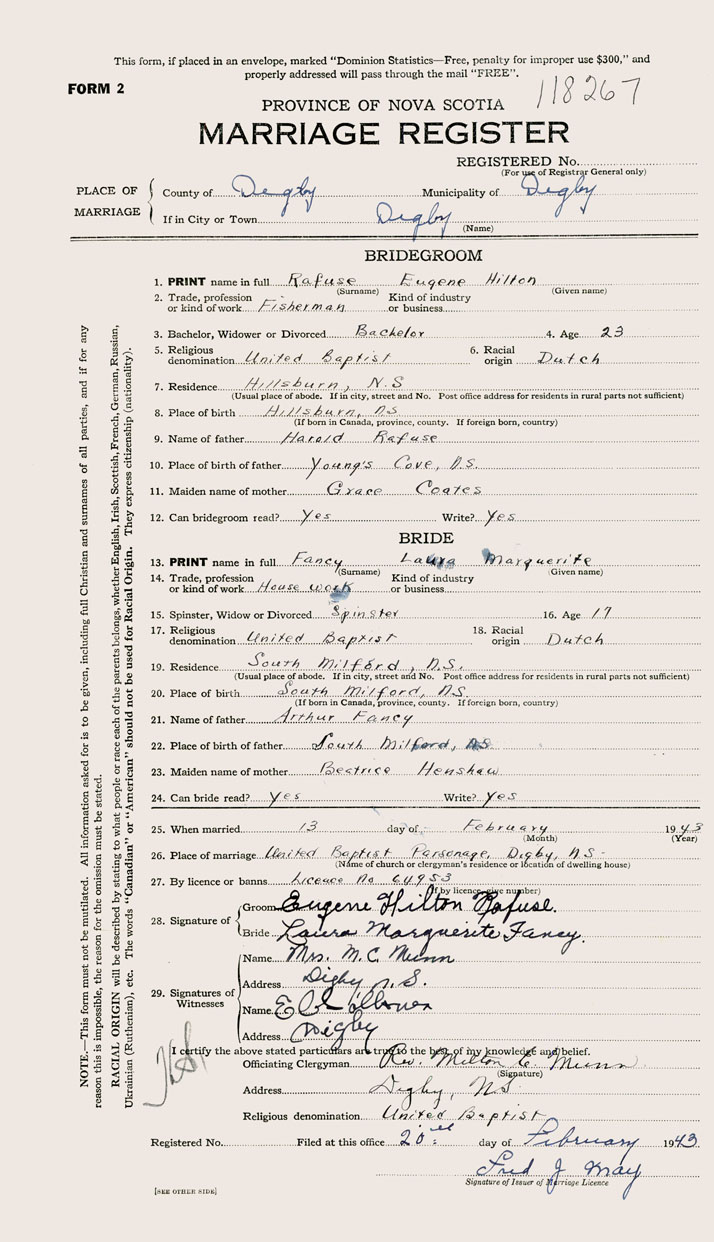 This form, if placed in an envelope, marked "Dominion Statistics—Free, penalty for improper use $300," and
properly addressed will pass through the mail "FREE".
FORM 2
118267
PROVINCE OF NOVA SCOTIA
MARRIAGE REGISTER
REGISTERED No.
(For use of Registrar General only)
PLACE OF MARRIAGE
County of Digby Municipality of Digby
If in City or Town Digby
(Name)
BRIDEGROOM
1. PRINT name in full Rafuse Eugene Hilton
(Surname) (Given name)
2. Trade, profession or kind of work Fisherman Kind of industry or business
3. Bachelor, Widower or Divorced Bachelor 4. Age 23
5. Religious denomination United Baptist 6. Racial origin Dutch
7. Residence Hillsburn, N.S
(Usual place of abode. If in city, street and No. Post office address for residents in rural parts not sufficient)
8. Place of birth Hillsburn, NS
(If born in Canada, province, county. If foreign born, country)
9. Name of father Harold Rafuse
10. Place of birth of father Young's Cove, N.S.
11. Maiden name of mother Grace Coates
12. Can bridegroom read? Yes Write? Yes
BRIDE
13. PRINT name in full Fancy Laura Marguerite
(Surname) (Given name)
14. Trade, profession or kind of work House work Kind of industry or business
15. Spinster, Widow or Divorced Spinster 16. Age 17
17. Religious denomination United Baptist 18. Racial origin Dutch
19. Residence South Milford, N.S.
(Usual place of abode. If in city, street and No. Post office address for residents in rural parts not sufficient)
20. Place of birth South Milford, NS
(If born in Canada, province, county. If foreign born, country)
21. Name of father Arthur Fancy
22. Place of birth of father South Milford, NS
23. Maiden name of mother Beatrice Henshaw
24. Can bride read? Yes Write? Yes
25. When married 13 day of February 1943
(Month) (Year)
26. Place of marriage United Baptist Parsonage, Digby, N.S.
(Name of church or clergyman's residence or location of dwelling house)
27. By licence or banns Licence No 64953
(If by licence, give number)
28. Signature of
Groom Eugene Hilton Rafuse.
Bride Laura Marguerite Fancy.
29. Signatures of Witnesses
Name Mrs. M.C. Munn
Address Digby N.S.
Name
Address Digby
I certify the above stated particulars are true to the best of my knowledge and belief.
Officiating Clergyman Rev. Milton C. Munn
(Signature)
Address Digby, NS
Religious denomination United Baptist
Registered No. Filed at this office 20 day of February 1943
Fred J May
Signature of Issuer of Marriage Licence
[SEE OTHER SIDE]
NOTE.—This form must not be mutilated. All information asked for is to be given, including full Christian and surnames of all parties, and if for any
reason this is impossible, the reason for the omission must be stated.
RACIAL ORIGIN will be described by stating to what people or race each of the parents belongs, whether English, Irish, Scottish, French, German, Russian,
Ukrainian (Ruthenian), etc. The words "Canadian" or "American" should not be used for Racial Origin. They express citizenship (nationality).